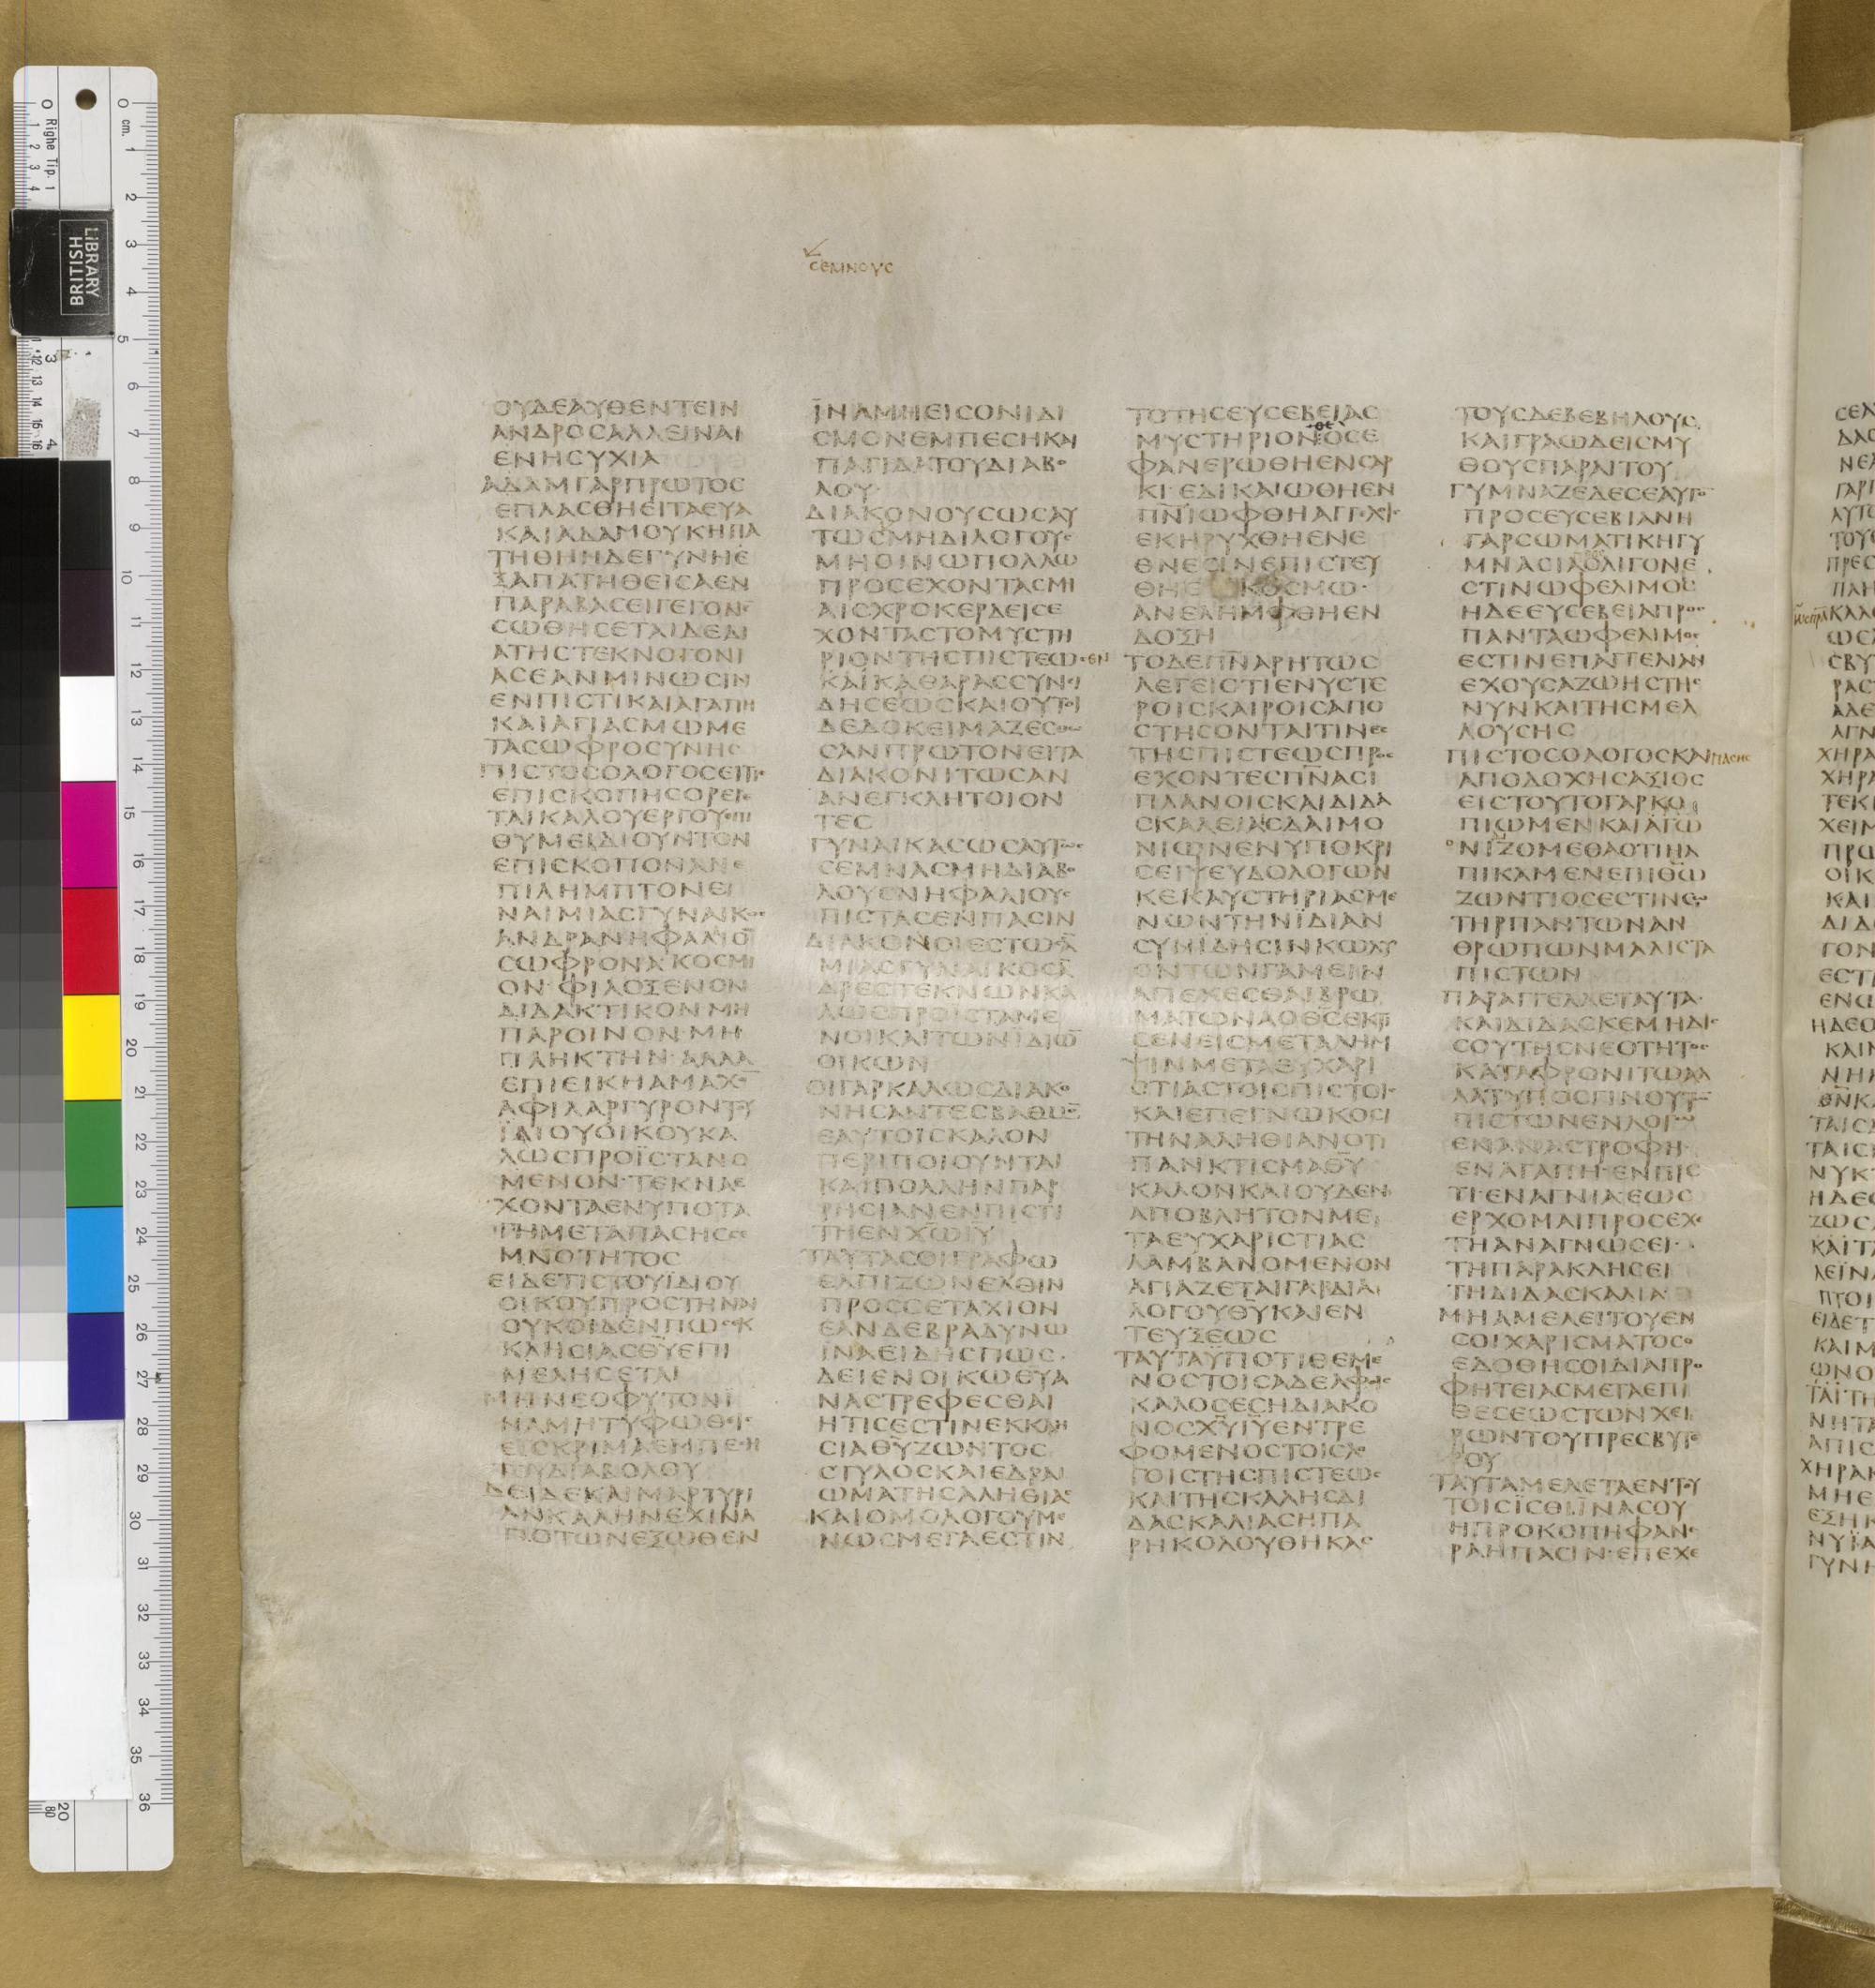 CЄΜΝΟΥC
ΟΥΔЄΑΥΘЄΝΤЄΙΝ
ΑΝΔΡΟCΑΛΛЄΙΝΑΙ
ЄΝΗCΥΧΙΑ
ΑΔΑΜΓΑΡΠΡΩΤΟC
ЄΠΛΑCΘΗЄΙΤΑЄΥΑ
ΚΑΙΑΔΑΜΟΥΚΗΠΑ
ΤΗΘΗΗΔЄΓΥΝΗЄ
ΞΑΠΑΤΗΘЄΙCΑЄΝ
ΠΑΡΑΒΑCЄΙΓЄΓΟΝЄ
CΩΘΗCЄΤΑΙΔЄΔΙ
ΑΤΗCΤЄΚΝΟΓΟΝΙ
ΑCЄΑΝΜΙΝΩCΙΝ
ЄΝΠΙCΤΙΚΑΙΑΓΑΠΗ
ΚΑΙΑΓΙΑCΜΩΜЄ
ΤΑCΩΦΡΟCΥΝΗC
ΠΙCΤΟCΟΛΟΓΟCЄΙΤΙC
ЄΠΙCΚΟΠΗCΟΡЄΓЄ
ΤΑΙΚΑΛΟΥЄΡΓΟΥЄΠΙ
ΘΥΜЄΙΔΙΟΥΝΤΟΝ
ЄΠΙCΚΟΠΟΝΑΝЄ
ΠΙΛΗΜΠΤΟΝЄΙ
ΝΑΙΜΙΑCΓΥΝΑΙΚΟC
ΑΝΔΡΑΝΗΦΑΛΙΟ̅
CΩΦΡΟΝΑΚΟCΜΙ
ΟΝ·ΦΙΛΟΞЄΝΟΝ
ΔΙΔΑΚΤΙΚΟΝ·ΜΗ
ΠΑΡΟΙΝΟΝ·ΜΗ
ΠΛΗΚΤΗΝ·ΑΛΛΑ
ЄΠΙЄΙΚΗΑΜΑΧΟ̅
ΑΦΙΛΑΡΓΥΡΟΝΤΟΥ
ΪΔΙΟΥΟΙΚΟΥΚΑ
ΛΩCΠΡΟΪCΤΑΝΟ
ΜЄΝΟΝ·ΤЄΚΝΑЄ
ΧΟΝΤΑЄΝΥΠΟΤΑ
ΓΗΜЄΤΑΠΑCΗCCЄ
ΜΝΟΤΗΤΟC
ЄΙΔЄΤΙCΤΟΥΪΔΙΟΥ
ΟΙΚΟΥΠΡΟCΤΗΝΑΙ
ΟΥΚΟΙΔЄΝΠΩCЄΚ
ΚΛΗCΙΑCΘ̅Υ̅ЄΠΙ
ΜЄΛΗCЄΤΑΙ
ΜΗΝЄΟΦΥΤΟΝΙ
ΝΑΜΗΤΥΦΩΘΙC
ЄΙCΚΡΙΜΑЄΜΠЄCΗ
ΤΟΥΔΙΑΒΟΛΟΥ
ΔЄΙΔЄΚΑΙΜΑΡΤΥΡΙ
ΑΝΚΑΛΗΝЄΧΙΝΑ
ΠΟΤΩΝЄΞΩΘЄΝ
ΪΝΑΜΗЄΙCΟΝΙΔΙ
CΜΟΝЄΜΠЄCΗΚΑΙ
ΠΑΓΙΔΑΤΟΥΔΙΑΒΟ
ΛΟΥ·
ΔΙΑΚΟΝΟΥCΩCΑΥ
ΤΩCΜΗΔΙΛΟΓΟΥC
ΜΗΟΙΝΩΠΟΛΛΩ
ΠΡΟCЄΧΟΝΤΑCΜΙ
ΑΙCΧΡΟΚЄΡΔЄΙCЄ
ΧΟΝΤΑCΤΟΜΥCΤΗ
ΡΙΟΝΤΗCΠΙCΤЄΩC ЄΝ
ΚΑΙΚΑΘΑΡΑCCΥΝΙ
ΔΗCЄΩCΚΑΙΟΥΤΟΙ
ΔЄΔΟΚЄΙΜΑΖЄCΘΩ
CΑΝΠΡΩΤΟΝЄΙΤΑ
ΔΙΑΚΟΝΙΤΩCΑΝ
ΑΝЄΓΚΛΗΤΟΙΟΝ
ΤЄC
ΓΥΝΑΙΚΑCΩCΑΥΤΩC
CЄΜΝΑCΜΗΔΙΑΒΟ
ΛΟΥCΝΗΦΑΛΙΟΥC
ΠΙCΤΑCЄΝΠΑCΙΝ
ΔΙΑΚΟΝΟΙЄCΤΩCΑ̅
ΜΙΑCΓΥΝΑΙΚΟCΑ̅
ΔΡЄCΤЄΚΝΩΝΚΑ
ΛΩCΠΡΟΙCΤΑΜЄ
ΝΟΙΚΑΙΤΩΝΪΔΙΩ̅
ΟΙΚΩΝ
ΟΙΓΑΡΚΑΛΩCΔΙΑΚΟ
ΝΗCΑΝΤЄCΒΑΘΜΟ̅
ЄΑΥΤΟΙCΚΑΛΟΝ
ΠЄΡΙΠΟΙΟΥΝΤΑΙ
ΚΑΙΠΟΛΛΗΝΠΑΡ
ΡΗCΙΑΝЄΝΠΙCΤΙ
ΤΗЄΝΧ̅Ω̅Ι̅Υ̅
ΤΑΥΤΑCΟΙΓΡΑΦΩ
ЄΛΠΙΖΩΝЄΛΘΙΝ
ΠΡΟCCЄΤΑΧΙΟΝ
ЄΑΝΔЄΒΡΑΔΥΝΩ
ΪΝΑЄΙΔΗCΠΩC·
ΔЄΙЄΝΟΙΚΩΘ̅Υ̅Α
ΝΑCΤΡЄΦЄCΘΑΙ
ΗΤΙCЄCΤΙΝЄΚΚΛΗ
CΙΑΘ̅Υ̅ΖΩΝΤΟC
CΤΥΛΟCΚΑΙЄΔΡΑΙ
ΩΜΑΤΗCΑΛΗΘΙΑC
ΚΑΙΟΜΟΛΟΓΟΥΜЄ
ΝΩCΜЄΓΑЄCΤΙΝ
ΤΟΤΗCЄΥCЄΒЄΙΑC
ΘЄ
ΜΥCΤΗΡΙΟΝΟCЄ
ΦΑΝЄΡΩΘΗЄΝCΑΡ
ΚΙ·ЄΔΙΚΑΙΩΘΗЄΝ
Π̅Ν̅Ι̅ΩΦΘΗΑΓΓЄΛΟΙC
ЄΚΗΡΥΧΘΗЄΝЄ
ΘΝЄCΙΝЄΠΙCΤЄΥ
ΘΗЄ ΚΟCΜΩ·
ΑΝЄΛΗΜΦΘΗЄΝ
ΔΟΞΗ
ΤΟΔЄΠ̅Ν̅ΑΡΗΤΩC
ΛЄΓЄΙΟΤΙЄΝΥCΤЄ
ΡΟΙCΚΑΙΡΟΙCΑΠΟ
CΤΗCΟΝΤΑΙΤΙΝЄC
ΤΗCΠΙCΤЄΩCΠΡΟC
ЄΧΟΝΤЄCΠ̅Ν̅ΑCΙ
ΠΛΑΝΟΙCΚΑΙΔΙΔΑ
CΚΑΛЄΙΑCΔΑΙΜΟ
ΝΙΩΝЄΝΥΠΟΚΡΙ
CЄΙΨЄΥΔΟΛΟΓΩΝ
ΚЄΚΑΥCΤΗΡΙΑCΜЄ
ΝΩΝΤΗΝΪΔΙΑΝ
CΥΝΙΔΗCΙΝΚΩΛΥ
ΟΝΤΩΝΓΑΜЄΙΝ
ΑΠЄΧЄCΘΑΙΒΡΩ
ΜΑΤΩΝΑΟΘ̅C̅ЄΚΤΙ
CЄΝЄΙCΜЄΤΑΛΗΜ
ΨΙΝΜЄΤΑЄΥΧΑΡΙ
CΤΙΑCΤΟΙCΠΙCΤΟΙC
ΚΑΙЄΠЄΓΝΩΚΟCΙ
ΤΗΝΑΛΗΘΙΑΝΟΤΙ
ΠΑΝΚΤΙCΜΑΘ̅Υ̅
ΚΑΛΟΝΚΑΙΟΥΔЄΝ
ΑΠΟΒΛΗΤΟΝΜЄ
ΤΑЄΥΧΑΡΙCΤΙΑC
ΛΑΜΒΑΝΟΜЄΝΟΝ
ΑΓΙΑΖЄΤΑΙΓΑΡΔΙΑ
ΛΟΓΟΥΘ̅Υ̅ΚΑΙЄΝ
ΤЄΥΞЄΩC
ΤΑΥΤΑΫΠΟΤΙΘЄΜЄ
ΝΟCΤΟΙCΑΔЄΛΦΟΙC
ΚΑΛΟCЄCΗΔΙΑΚΟ
ΝΟCΧ̅Υ̅Ι̅Υ̅ЄΝΤΡЄ
ΦΟΜЄΝΟCΤΟΙCΛΟ
ΓΟΙCΤΗCΠΙCΤЄΩC
ΚΑΙΤΗCΚΑΛΗCΔΙ
ΔΑCΚΑΛΙΑCΗΠΑ
ΡΗΚΟΛΟΥΘΗΚΑC
ΤΟΥCΔЄΒЄΒΗΛΟΥC
ΚΑΙΓΡΑΩΔЄΙCΜΥ
ΘΟΥCΠΑΡΑΙΤΟΥ
ΓΥΜΝΑΖЄΔЄCЄΑΥΤΟ̅
ΠΡΟCЄΥCЄΒΙΑΝΗ
ΓΑΡCΩΜΑΤΙΚΗΓΥ
ΜΝΑCΙΑΟΛΙΓΟΝЄ
CΤΙΝΩΦЄΛΙΜΟC
ΗΔЄЄΥCЄΒЄΙΑΠΡΟC
ΠΑΝΤΑΩΦЄΛΙΜΟC
ЄCΤΙΝЄΠΑΓΓЄΛΙΑΝ
ЄΧΟΥCΑΖΩΗCΤΗC
ΝΥΝΚΑΙΤΗCΜЄΛ
ΛΟΥCΗC
ΠΙCΤΟCΟΛΟΓΟCΚΑΙ ΠΑCΗC
ΑΠΟΔΟΧΗCΑΞΙΟC
ЄΙCΤΟΥΤΟΓΑΡΚΟ
ΠΙΩΜЄΝΚΑΙΑΓΩ
ΝΙΖΟΜЄΘΑΟΤΙΗΛ
ΠΙΚΑΜЄΝЄΠΙΘ̅Ω̅
ΖΩΝΤΙΟCЄCΤΙΝCΩ
ΤΗΡΠΑΝΤΩΝΑΝ
ΘΡΩΠΩΝΜΑΛΙCΤΑ
ΠΙCΤΩΝ
ΠΑΡΑΓΓЄΛΛЄΤΑΥΤΑ·
ΚΑΙΔΙΔΑCΚЄΜΗΔΙC
CΟΥΤΗCΝЄΟΤΗΤΟC
ΚΑΤΑΦΡΟΝΙΤΩΑΛ
ΛΑΤΥΠΟCΓΙΝΟΥΤΩ̅
ΠΙCΤΩΝЄΝΛΟΓΩ
ЄΝΑΝΑCΤΡΟΦΗ·
ЄΝΑΓΑΠΗ·ЄΝΠΙC
ΤΙ·ЄΝΑΓΝΙΑ·ЄΩC
ЄΡΧΟΜΑΙΠΡΟCЄΧЄ
ΤΗΑΝΑΓΝΩCЄΙ·
ΤΗΠΑΡΑΚΛΗCЄΙ
ΤΗΔΙΔΑCΚΑΛΙΑ
ΜΗΑΜЄΛЄΙΤΟΥЄΝ
CΟΙΧΑΡΙCΜΑΤΟCΟ
ЄΔΟΘΗCΟΙΔΙΑΠΡΟ
ΦΗΤЄΙΑCΜЄΤΑЄΠΙ
ΘЄCЄΩCΤΩΝΧЄΙ
ΡΩΝΤΟΥΠΡЄCΒΥΤЄ
ΡΟΥ
ΤΑΥΤΑΜЄΛЄΤΑЄΝΤΟΥ
ΤΟΙCΪCΘΙΪΝΑCΟΥ
ΗΠΡΟΚΟΠΗΦΑΝЄ
ΡΑΗΠΑCΙΝ·ЄΠЄΧЄ